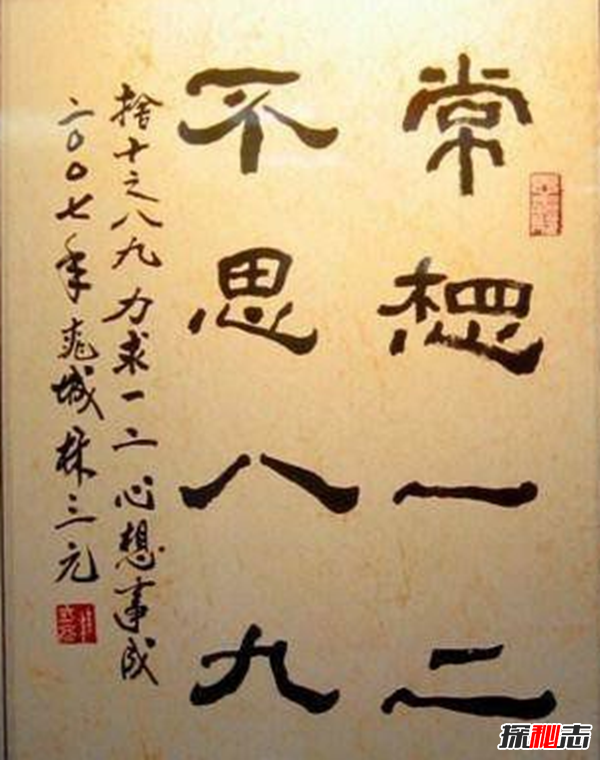 常想一二
不思八九
捨十之八九力求一二心想事成
二〇〇七年
城林三元
探秘志